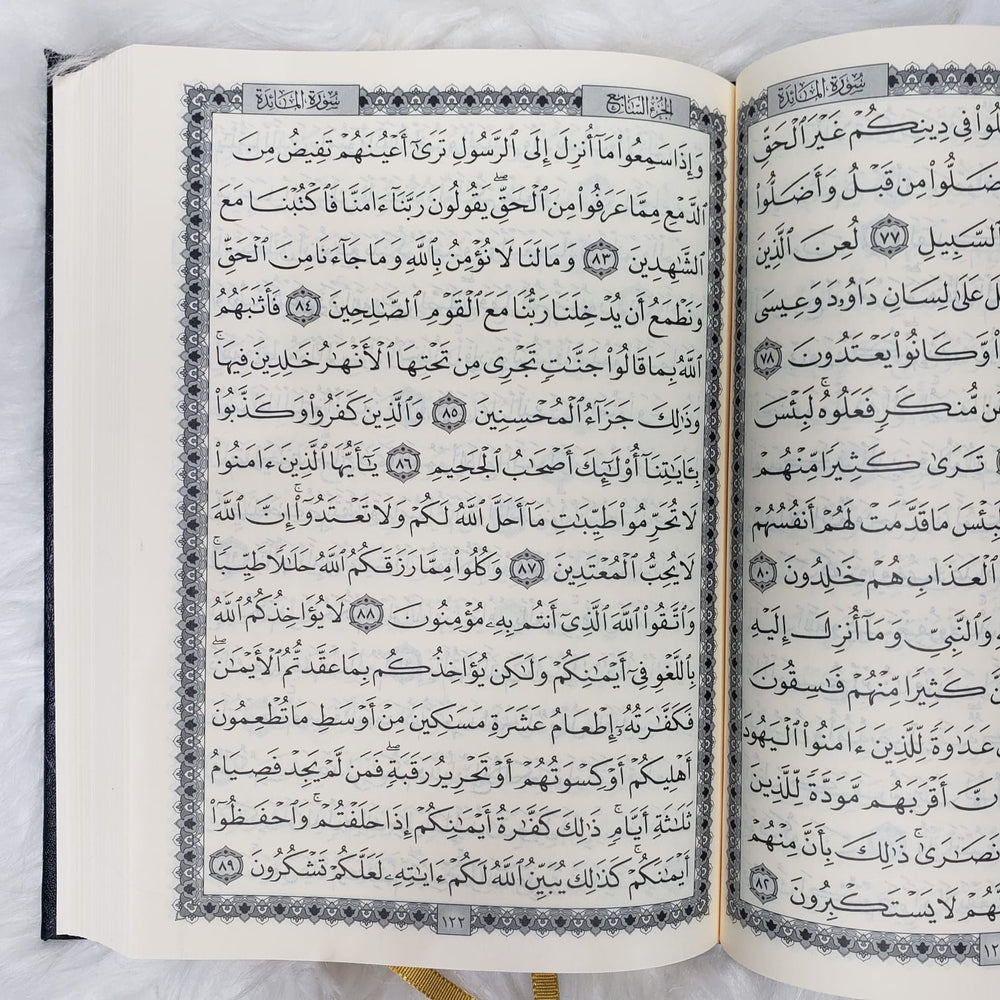 سُورَةُ المَائـِدَة
لُوا۟ فِى دِينِكُمْ غَيْرَ ٱلْحَقِّ
ضَلُّوا۟ مِن قَبْلُ وَأَضَلُّوا۟
ٱلسَّبِيلِ ٧٧ لُعِنَ ٱلَّذِينَ
عَلَىٰ لِسَانِ دَاوُۥدَ وَعِيسَى
وَّكَانُوا۟ يَعْتَدُونَ ٧٨
مُّنكَرٍ فَعَلُوهُ ۚ لَبِئْسَ
تَرَىٰ كَثِيرًا مِّنْهُمْ
بِئْسَ مَا قَدَّمَتْ لَهُمْ أَنفُسُهُمْ
ٱلْعَذَابِ هُمْ خَـٰلِدُونَ ٨٠
وَٱلنَّبِىِّ وَمَآ أُنزِلَ إِلَيْهِ
كَثِيرًا مِّنْهُمْ فَـٰسِقُونَ
عَدَٰوَةً لِّلَّذِينَ ءَامَنُوا۟ ٱلْيَهُودَ
نَّ أَقْرَبَهُم مَّوَدَّةً لِّلَّذِينَ
نَصَـٰرَىٰ ۚ ذَٰلِكَ بِأَنَّ مِنْهُمْ
نَّهُمْ لَا يَسْتَكْبِرُونَ ٨٢
الجُزْءُ السَّابِعُ
سُورَةُ المَائـِدَة
وَإِذَا سَمِعُوا۟ مَآ أُنزِلَ إِلَى ٱلرَّسُولِ تَرَىٰٓ أَعْيُنَهُمْ تَفِيضُ مِنَ
ٱلدَّمْعِ مِمَّا عَرَفُوا۟ مِنَ ٱلْحَقِّ ۖ يَقُولُونَ رَبَّنَآ ءَامَنَّا فَٱكْتُبْنَا مَعَ
ٱلشَّـٰهِدِينَ ٨٣ وَمَا لَنَا لَا نُؤْمِنُ بِٱللَّهِ وَمَا جَآءَنَا مِنَ ٱلْحَقِّ
وَنَطْمَعُ أَن يُدْخِلَنَا رَبُّنَا مَعَ ٱلْقَوْمِ ٱلصَّـٰلِحِينَ ٨٤ فَأَثَـٰبَهُمُ
ٱللَّهُ بِمَا قَالُوا۟ جَنَّـٰتٍ تَجْرِى مِن تَحْتِهَا ٱلْأَنْهَـٰرُ خَـٰلِدِينَ فِيهَا ۚ
وَذَٰلِكَ جَزَآءُ ٱلْمُحْسِنِينَ ٨٥ وَٱلَّذِينَ كَفَرُوا۟ وَكَذَّبُوا۟
بِـَٔايَـٰتِنَآ أُو۟لَـٰٓئِكَ أَصْحَـٰبُ ٱلْجَحِيمِ ٨٦ يَـٰٓأَيُّهَا ٱلَّذِينَ ءَامَنُوا۟
لَا تُحَرِّمُوا۟ طَيِّبَـٰتِ مَآ أَحَلَّ ٱللَّهُ لَكُمْ وَلَا تَعْتَدُوٓا۟ ۚ إِنَّ ٱللَّهَ
لَا يُحِبُّ ٱلْمُعْتَدِينَ ٨٧ وَكُلُوا۟ مِمَّا رَزَقَكُمُ ٱللَّهُ حَلَـٰلًا طَيِّبًا ۚ
وَٱتَّقُوا۟ ٱللَّهَ ٱلَّذِىٓ أَنتُم بِهِۦ مُؤْمِنُونَ ٨٨ لَا يُؤَاخِذُكُمُ ٱللَّهُ
بِٱللَّغْوِ فِىٓ أَيْمَـٰنِكُمْ وَلَـٰكِن يُؤَاخِذُكُم بِمَا عَقَّدتُّمُ ٱلْأَيْمَـٰنَ ۖ
فَكَفَّـٰرَتُهُۥٓ إِطْعَامُ عَشَرَةِ مَسَـٰكِينَ مِنْ أَوْسَطِ مَا تُطْعِمُونَ
أَهْلِيكُمْ أَوْ كِسْوَتُهُمْ أَوْ تَحْرِيرُ رَقَبَةٍ ۖ فَمَن لَّمْ يَجِدْ فَصِيَامُ
ثَلَـٰثَةِ أَيَّامٍ ۚ ذَٰلِكَ كَفَّـٰرَةُ أَيْمَـٰنِكُمْ إِذَا حَلَفْتُمْ ۚ وَٱحْفَظُوٓا۟
أَيْمَـٰنَكُمْ ۚ كَذَٰلِكَ يُبَيِّنُ ٱللَّهُ لَكُمْ ءَايَـٰتِهِۦ لَعَلَّكُمْ تَشْكُرُونَ ٨٩
١٢٢